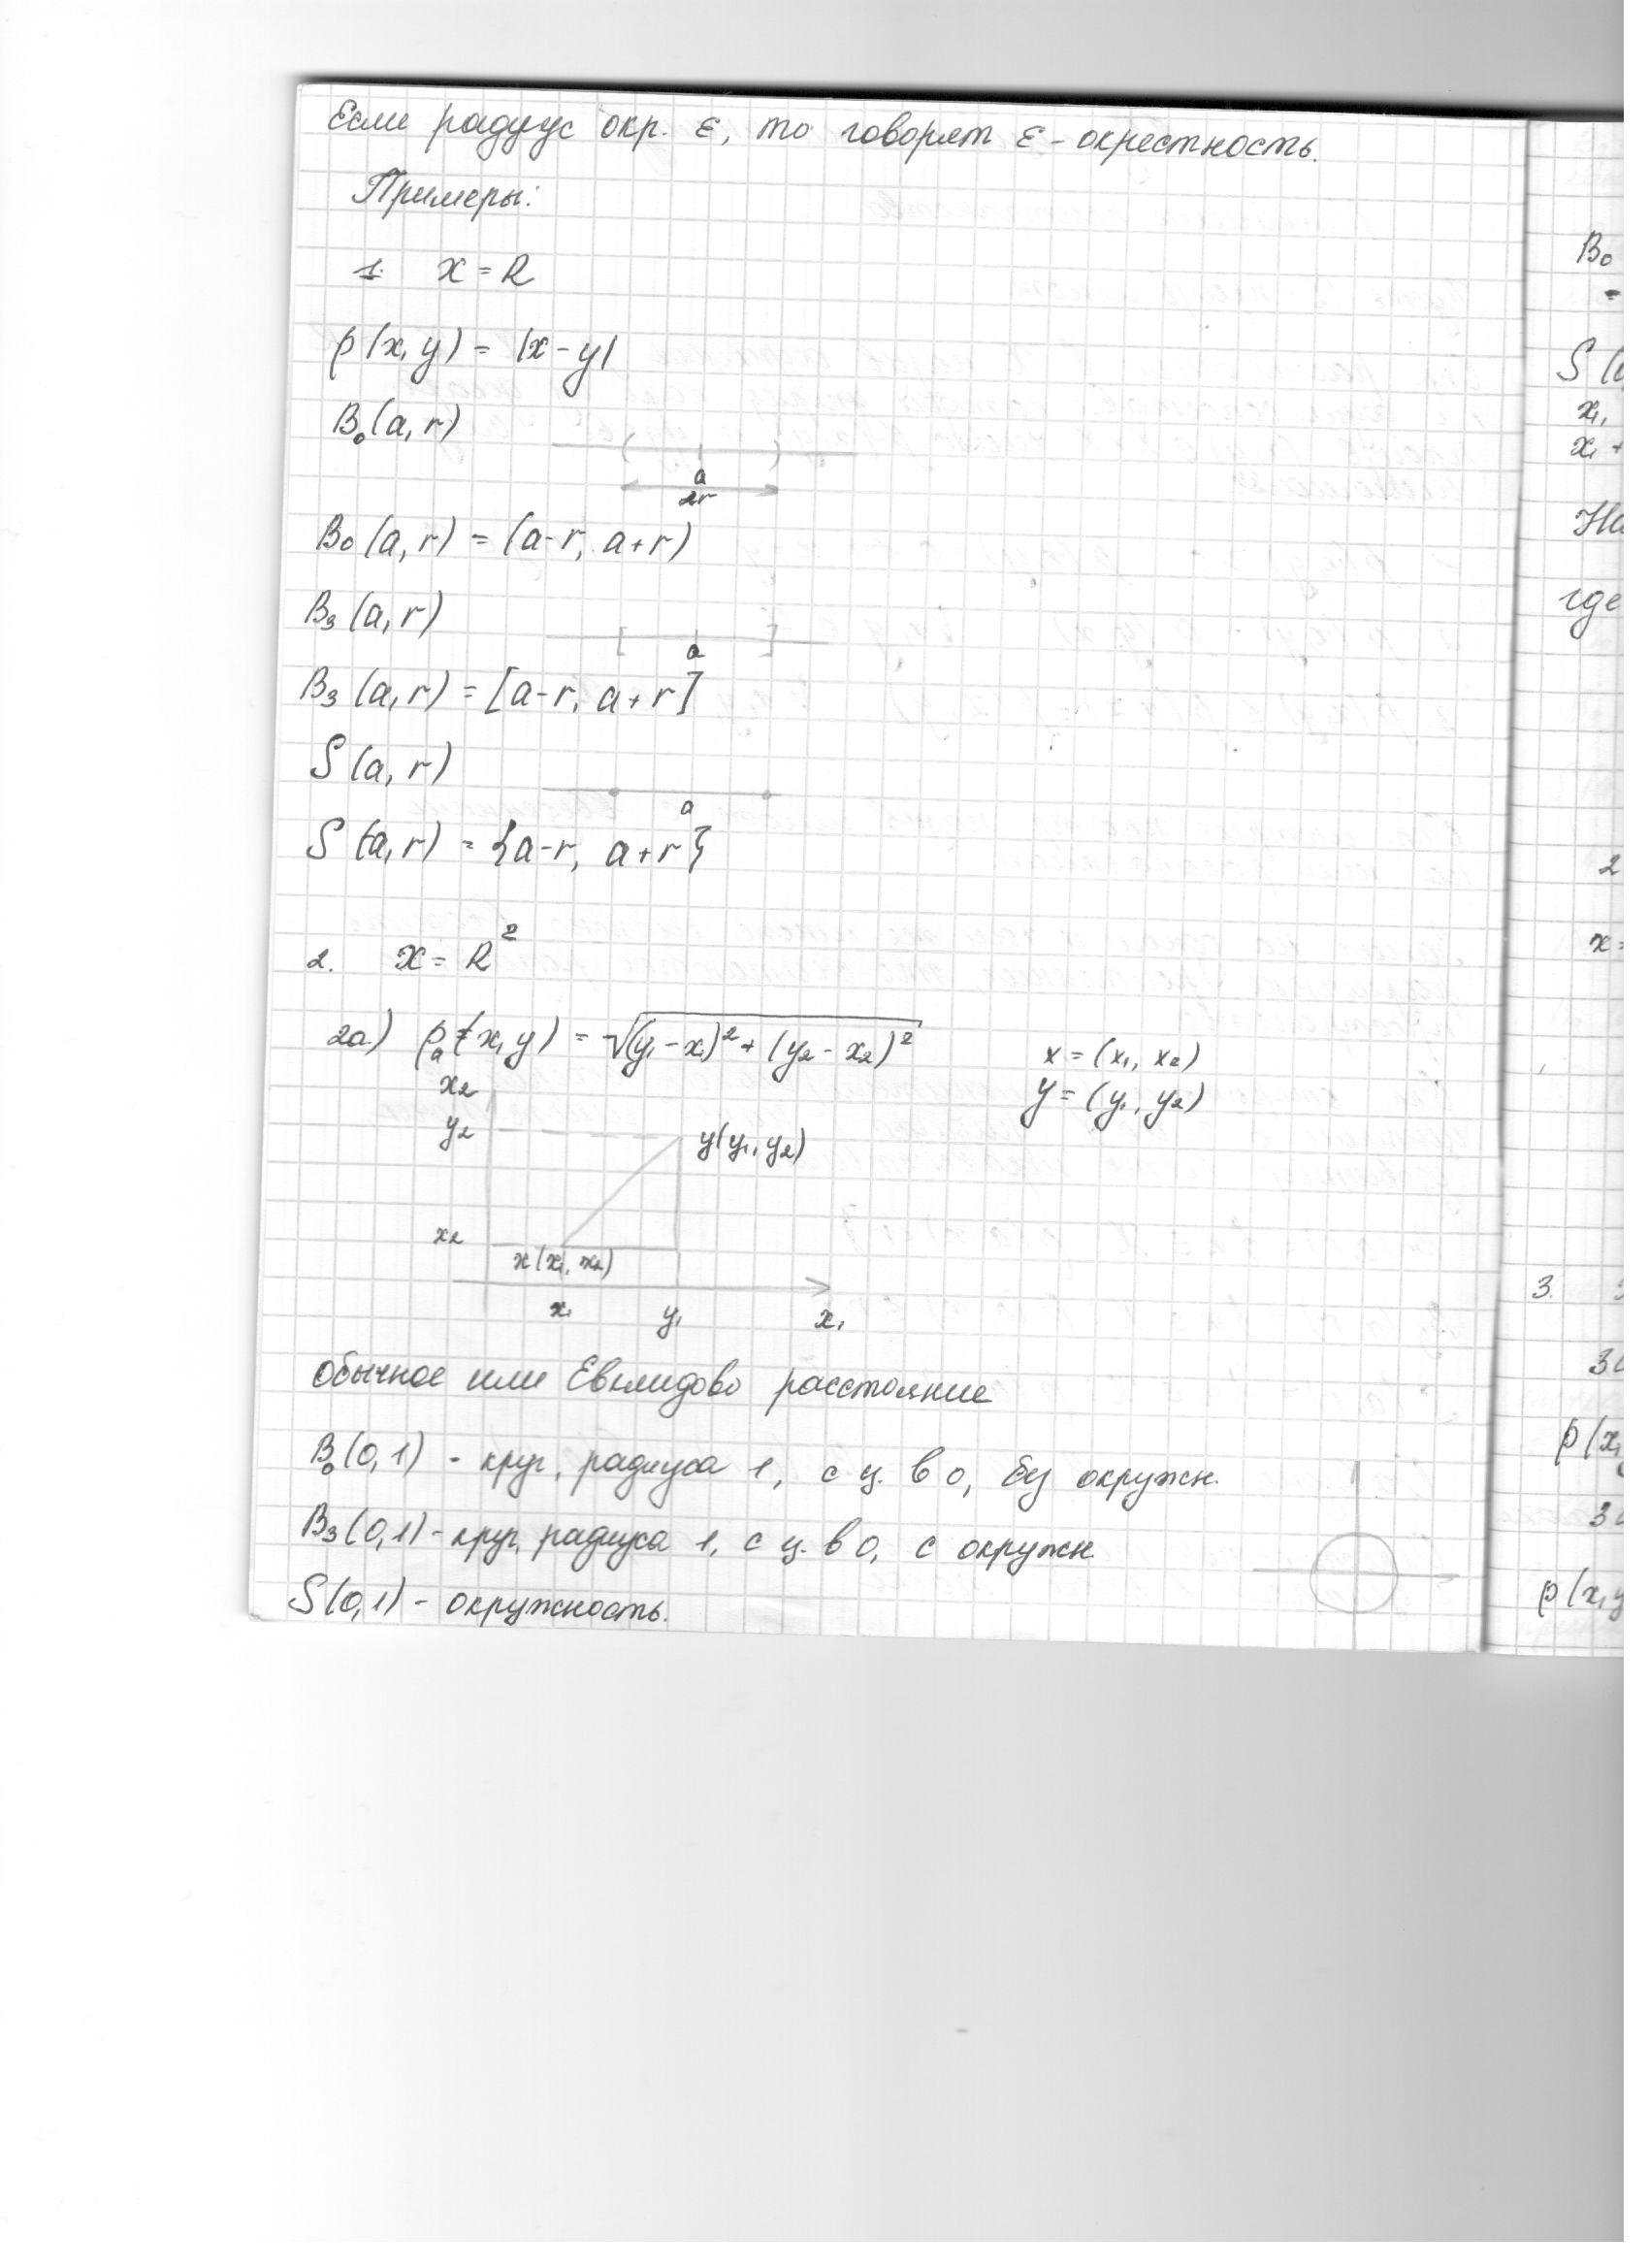 Если радиус окр. ε, то говорят ε - окрестность.
Примеры:
1. X = R
ρ(x, y) = |x - y|
Bо(a, r)
a
2r
Bо(a, r) = (a-r, a+r)
Bз(a, r)
a
Bз(a, r) = [a-r, a+r]
S(a, r)
a
S(a, r) = {a-r, a+r}
2. X = R²
2a) ρ(x, y) = √(y₁ - x₁)² + (y₂ - x₂)²
x = (x₁, x₂)
y = (y₁, y₂)
x₂
y₂
y(y₁, y₂)
x₂
x(x₁, x₂)
x₁ y₁ x₁
Обычное или Евклидово расстояние
Bо(0, 1) - круг, радиуса 1, с ц. в 0, без окружн.
Bз(0, 1) - круг, радиуса 1, с ц. в 0, с окружн.
S(0, 1) - окружность.
Bо
S(
x₁,
x₁ +
где
2
x =
3.
ρ(x,
ρ(x, y